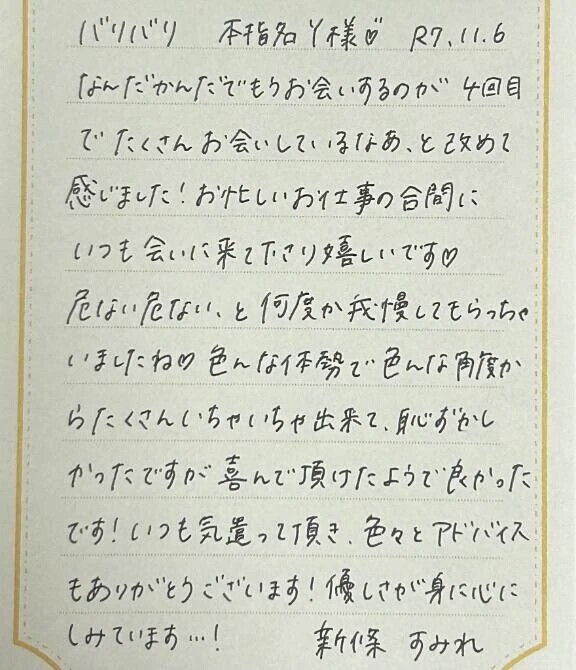 バリバリ 本指名Y様♡ R7.11.6
なんだかんだでもうお会いするのが4回目
でたくさんお会いしているなあ、と改めて
感じました!お忙しいお仕事の合間に
いつも会いに来て下さり嬉しいです♡
危ない危ない、と何度か我慢してもらっちゃ
いましたね♡色んな体勢で色んな角度か
らたくさんいちゃいちゃ出来て、恥ずかし
かったですが喜んで頂けたようで良かった
です!いつも気遣って頂き、色々とアドバイス
もありがとうございます!優しさが身に心に
しみています…! 新條 すみれ